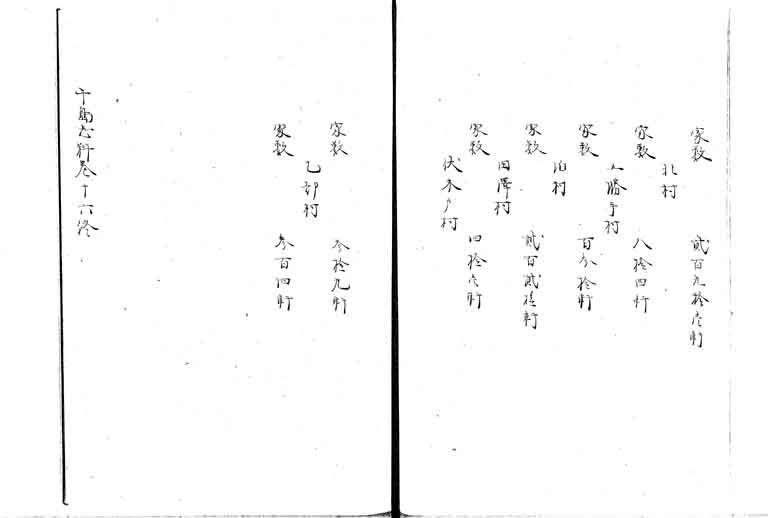 家数 貳百九拾六軒
北村
家数 八拾四軒
上勝手村
家数 百六拾軒
泊村
家数 貳百貳拾軒
田澤村
家数 四拾六軒
伏木戸村
家数 参拾九軒
乙部村
家数 参百四軒
千島志料巻十六終